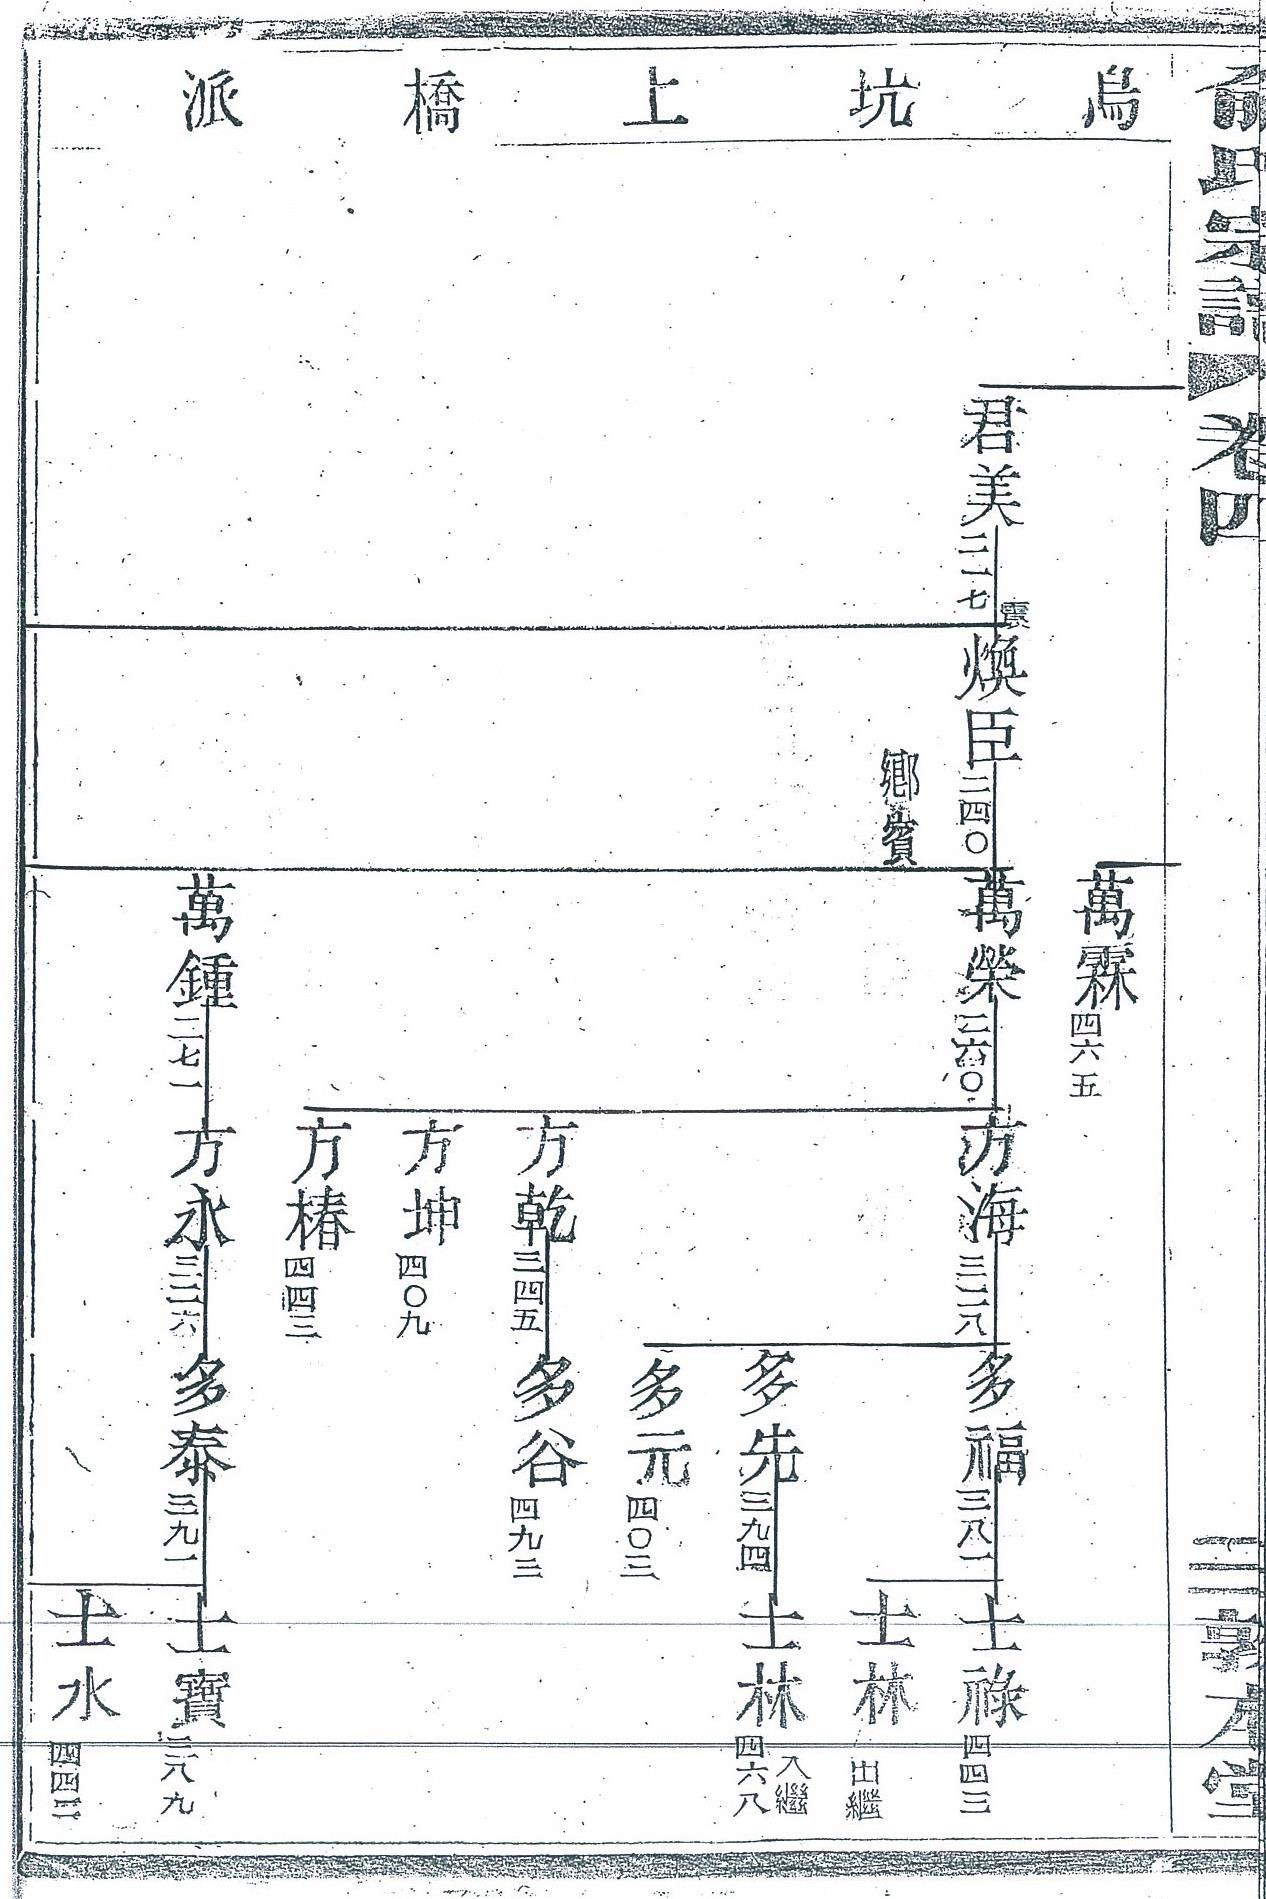 俞氏宗譜 卷四
三 敦本堂
烏坑上橋派
萬霖
四六五
君美
二一七
煥臣
二四〇
萬榮
二六〇
方海
三二八
多福
三八一
士祿
四四三
鄉賓
士林
出繼
多先
三九四
士林
四六八
入繼
多元
四〇三
方乾
三四五
多谷
四九三
方坤
四〇九
方椿
四四三
萬鍾
二七一
方永
三二六
多泰
三九一
士寶
士水